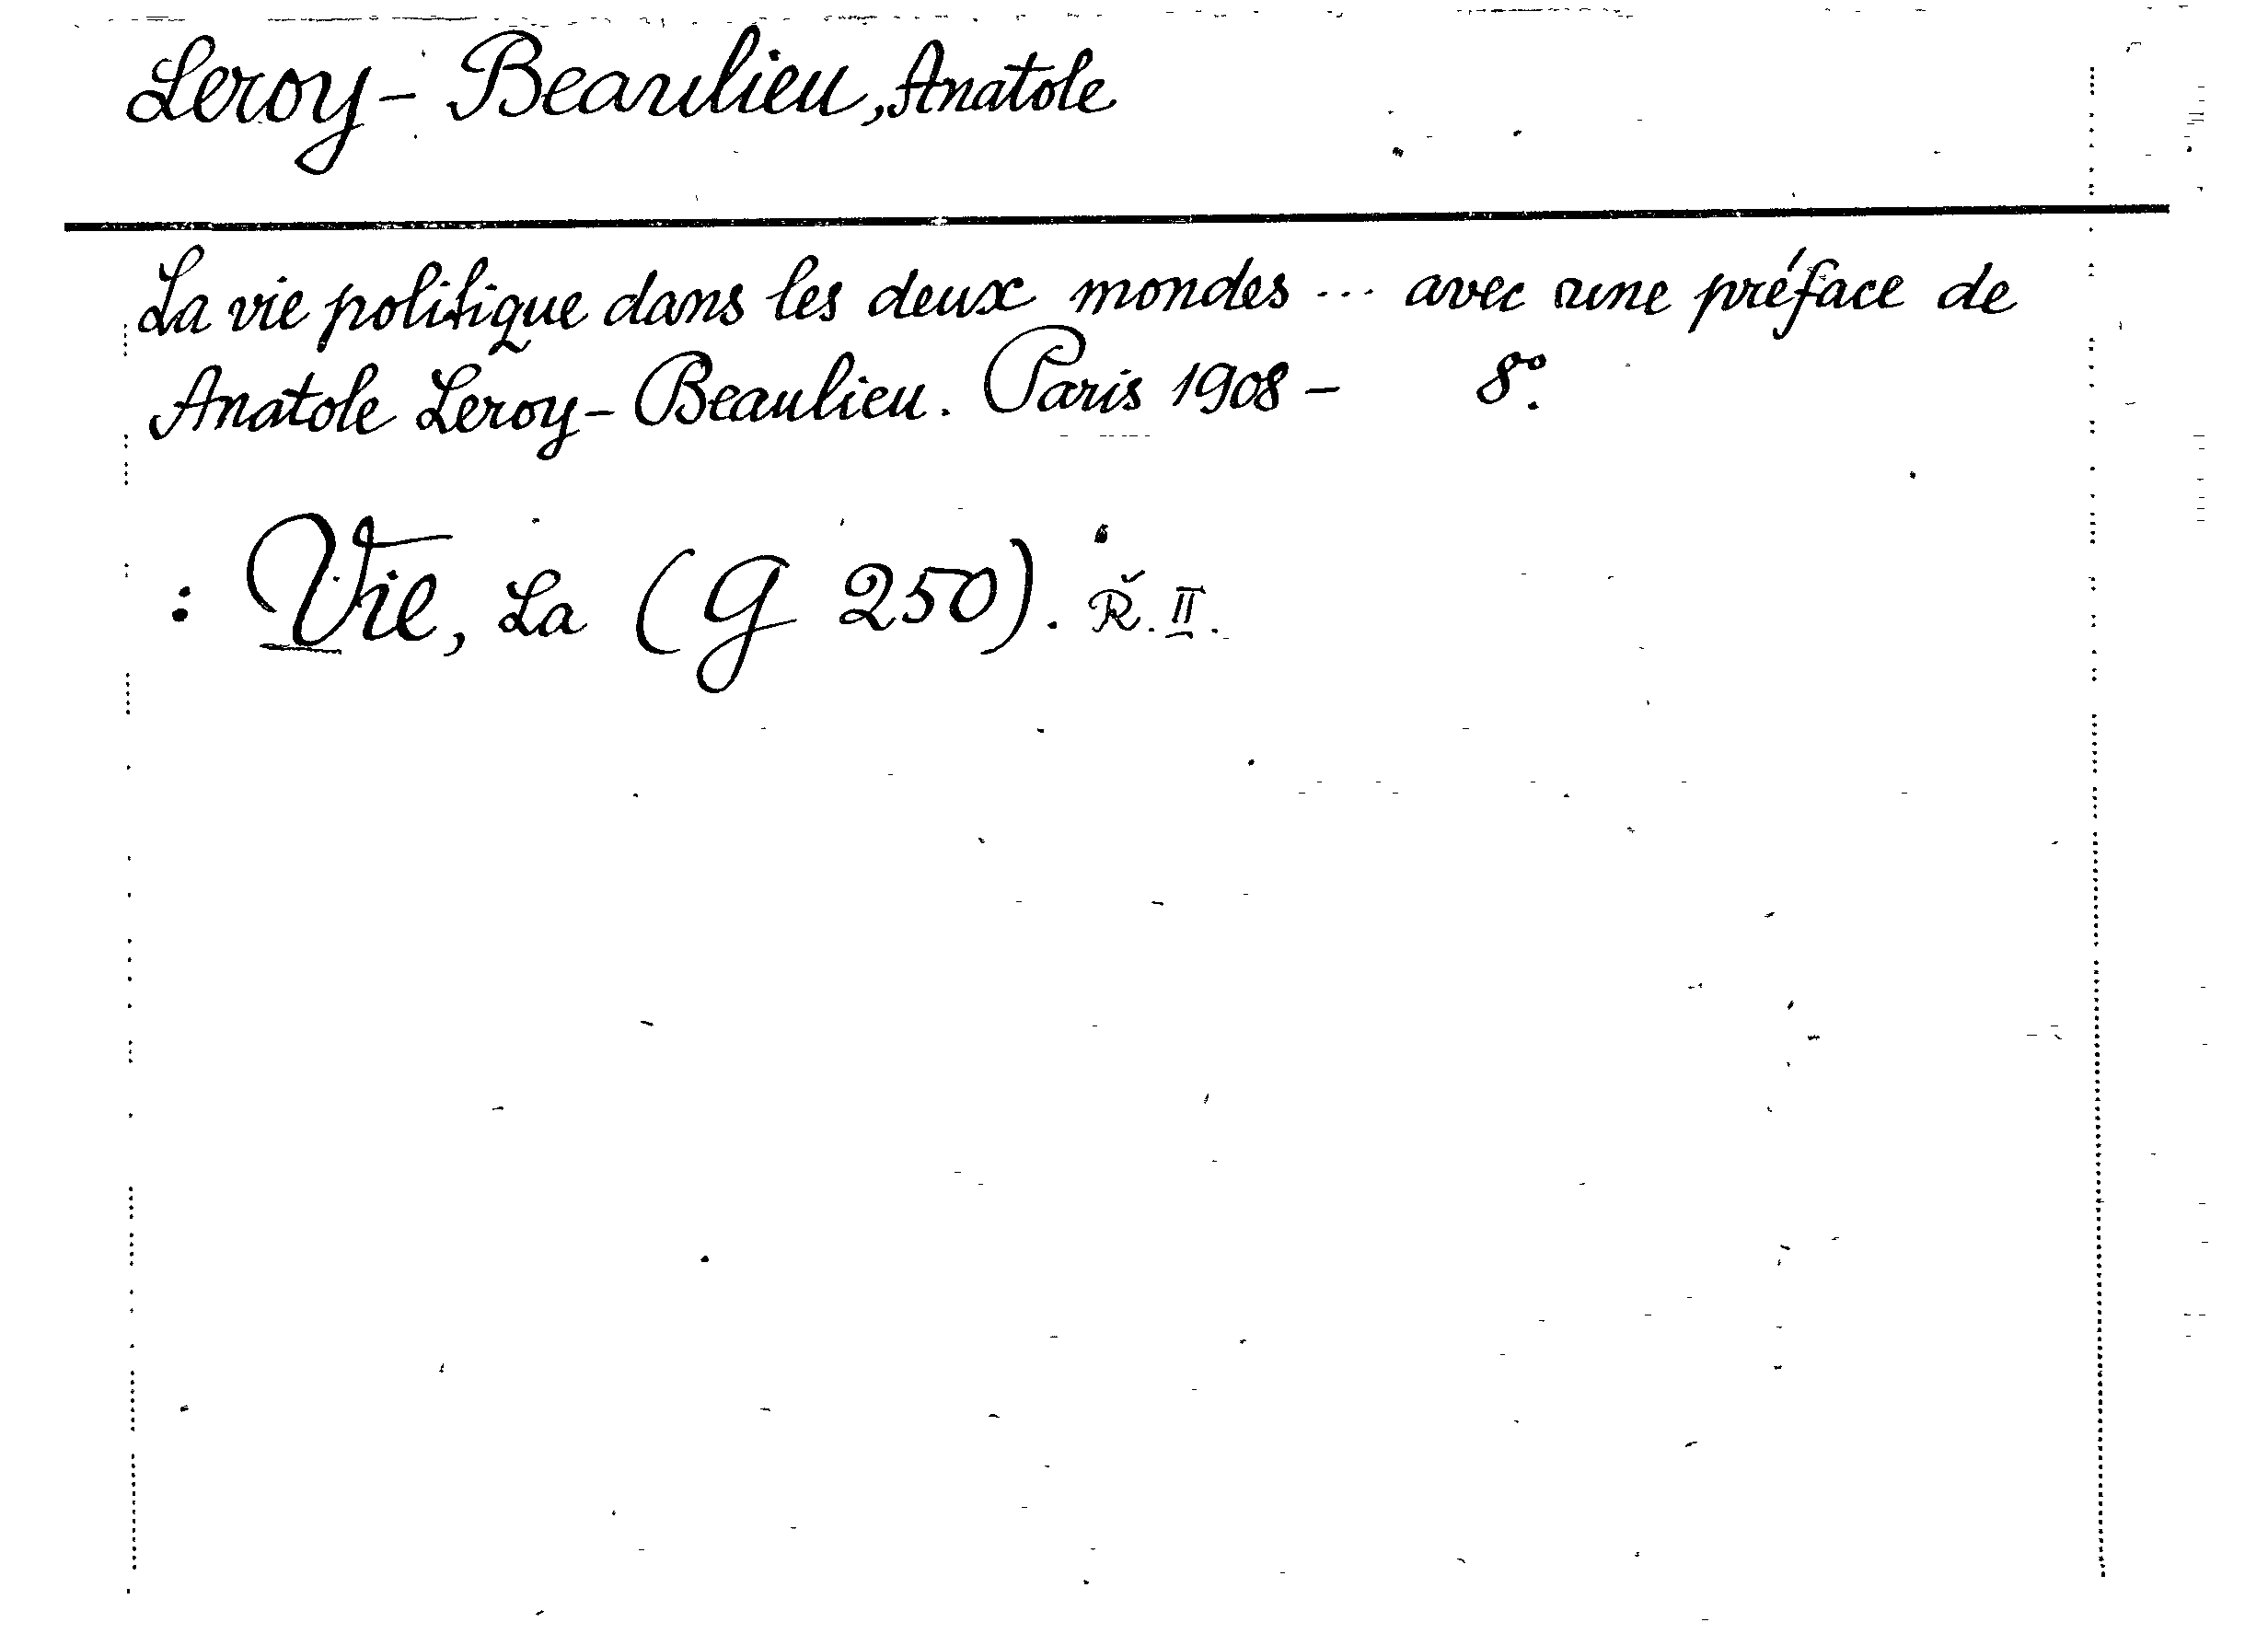 Leroy-Beaulieu, Anatole
La vie politique dans les deux mondes ... avec une préface de
Anatole Leroy-Beaulieu. Paris 1908 - 8°.
: Vie, La (G 250). Ř. II.